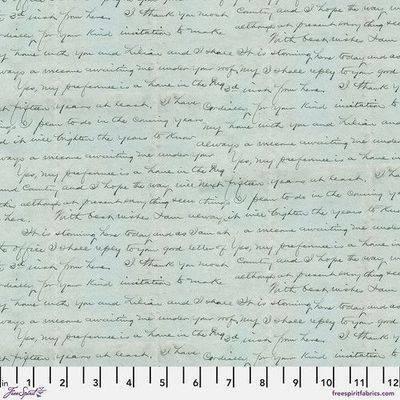 3rd inst from here. I thank you most County and I hope the way will
although at present everything seem
cordially for your kind invitation to make With best wishes I am
my home with you and Lilian and I shall It is storming here today and as
always a welcome awaiting me under your roof, My I shall reply to your good
Yes, my preference is a home in the
next fifteen years at least. I have Cordially for your kind invitation to
I plan to do in the coming years my home with you and Lilian and
and it will brighten the years to know always a welcome awaiting me under
a welcome awaiting me under your Yes, my preference is a home in
Yes, my preference is a home in the next fifteen years at least. I
and County and I hope the way will I plan to do in the coming
although at present everything seem and it will brighten the years to know
here. With best wishes I am
It is storming here today and as I am a welcome awaiting me under
office I shall reply to your good letter of Yes, my preference is a home in
3rd inst from here. I thank you most County and I hope the way will
although at present everything seem
cordially for your kind invitation to make With best wishes I am
my home with you and Lilian and I shall It is storming here today and as
always a welcome awaiting me under your roof, My I shall reply to your good
Yes, my preference is a home in the 3rd inst from here. I thank
next fifteen years at least. I have Cordially for your kind invitation to
in 1 2 3 4 5 6 7 8 9 10 11 12
FreeSpirit freespiritfabrics.com